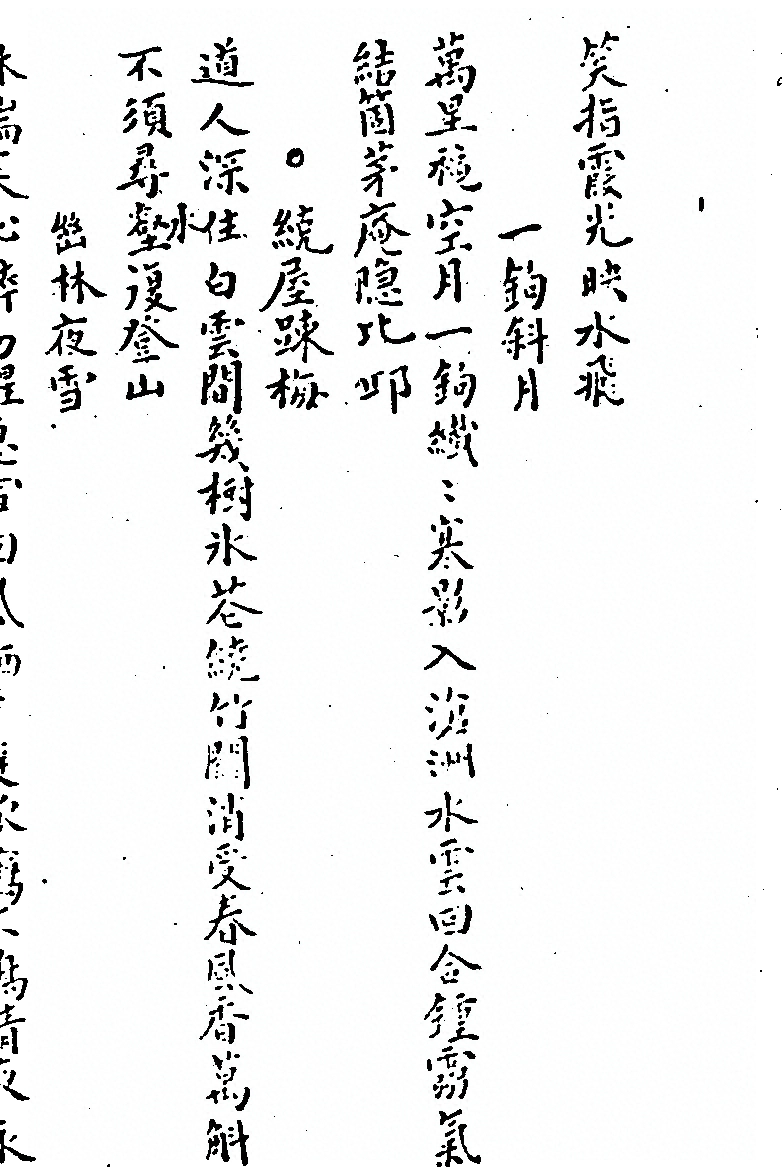 笑指霞光映水飛
一鈎斜月
萬里穐空月一鈎纖〻寒影入滄洲水雲回合鍾靈氣
結箇茅庵隱比邱
○繞屋疎梅
道人深住白雲間幾樹氷花繞竹關消受春風香萬斛
不須尋壑水復登山
幽林夜雪